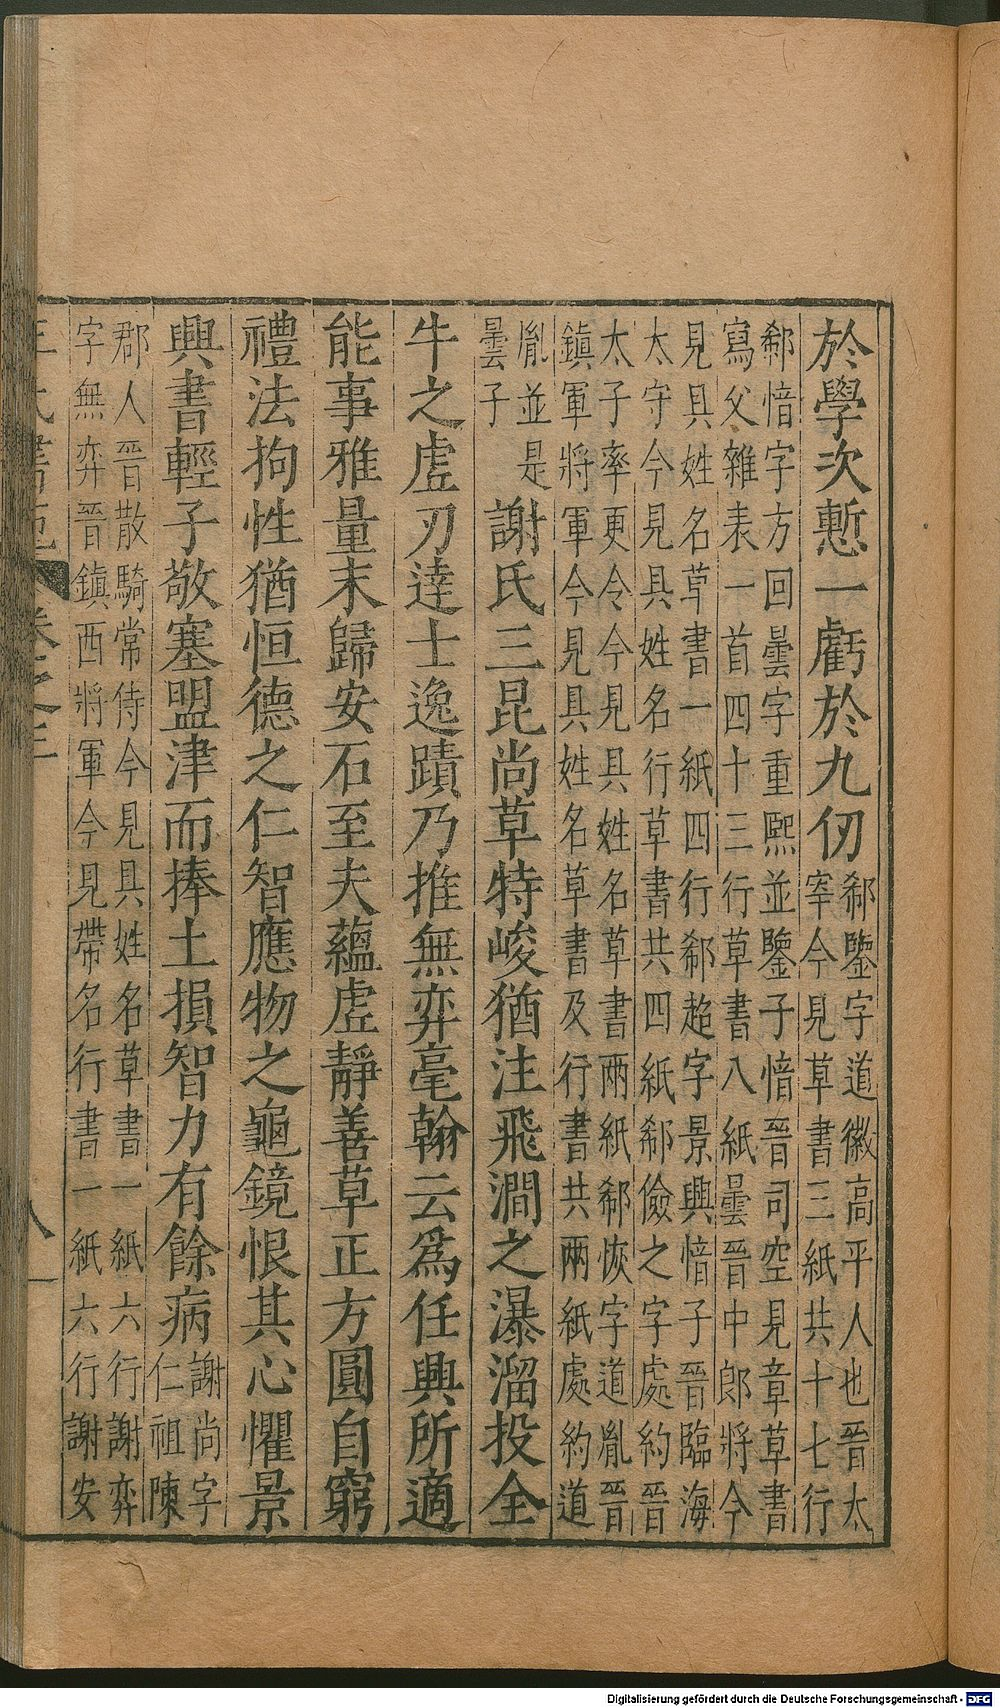 於學次慙一虧於九仞郗鑒字道徽高平人也晉太
宰今見草書三紙共十七行
郗愔字方回曇字重熙並鑒子愔晉司空見章草書
寫父雜表一首四十三行草書八紙曇晉中郎將今
見具姓名草書一紙四行郗超字景興愔子晉臨海
太守今見具姓名行草書共四紙郗儉之字處約晉
太子率更令今見具姓名草書兩紙郗恢字道胤晉
鎮軍將軍今見具姓名草書及行書共兩紙處約道
胤並是
曇子
謝氏三昆尚草特峻猶注飛澗之瀑溜投全
牛之虛刃達士逸蹟乃推無弈毫翰云爲任興所適
能事雅量末歸安石至夫蘊虛靜善草正方圓自窮
禮法拘性猶恒德之仁智應物之龜鏡恨其心懼景
興書輕子敬塞盟津而捧土損智力有餘病謝尚字
仁祖陳
郡人晉散騎常侍今見具姓名草書一紙六行謝弈
字無弈晉鎮西將軍今見帶名行書一紙六行謝安
王氏書苑 卷之三 八
Digitalisierung gefördert durch die Deutsche Forschungsgemeinschaft - DFG